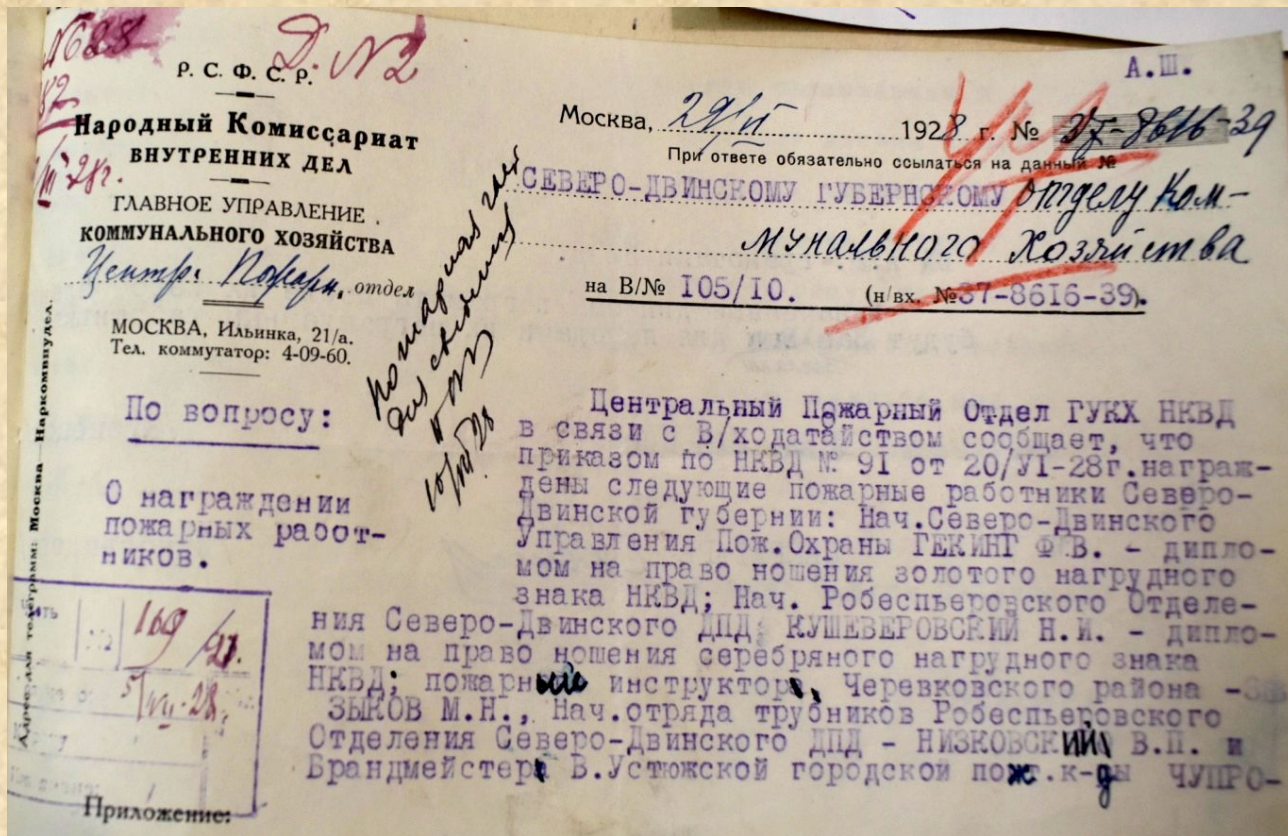 №628
Д. №2
82
/III 28г.
Р. С. Ф. С. Р.
Народный Комиссариат
ВНУТРЕННИХ ДЕЛ
ГЛАВНОЕ УПРАВЛЕНИЕ
КОММУНАЛЬНОГО ХОЗЯЙСТВА
Центр. Пожарн. отдел
МОСКВА, Ильинка, 21/а.
Тел. коммутатор: 4-09-60.
Адрес для телеграмм: Москва—Наркомвнудел.
А.Ш.
Москва, 29/VI 1928 г. № 37-8616-39
При ответе обязательно ссылаться на данный №
СЕВЕРО-ДВИНСКОМУ ГУБЕРНСКОМУ отделу Ком-
мунального Хозяйства
на В/№ 105/10. (н/вх. №37-8616-39).
По вопросу:
О награждении
пожарных работ-
ников.
Центральный Пожарный Отдел ГУКХ НКВД
в связи с В/ходатайством сообщает, что
приказом по НКВД № 91 от 20/УI-28г.награж-
дены следующие пожарные работники Северо-
Двинской губернии: Нач.Северо-Двинского
Управления Пож.Охраны ГЕКИНГ Ф.В. - дипло-
мом на право ношения золотого нагрудного
знака НКВД; Нач. Робеспьеровского Отделе-
ния Северо-Двинского ДПД КУШЕВЕРОВСКИЙ Н.И. - дипло-
мом на право ношения серебряного нагрудного знака
НКВД; пожарный инструктор, Черевковского района -
ЗЫКОВ М.Н., Нач.отряда трубников Робеспьеровского
Отделения Северо-Двинского ДПД - НИЗКОВСКИЙ В.П. и
Брандмейстер В.Устюжской городской пож.к-ды ЧУПРО-
169/21.
5/VII-28
Приложение: